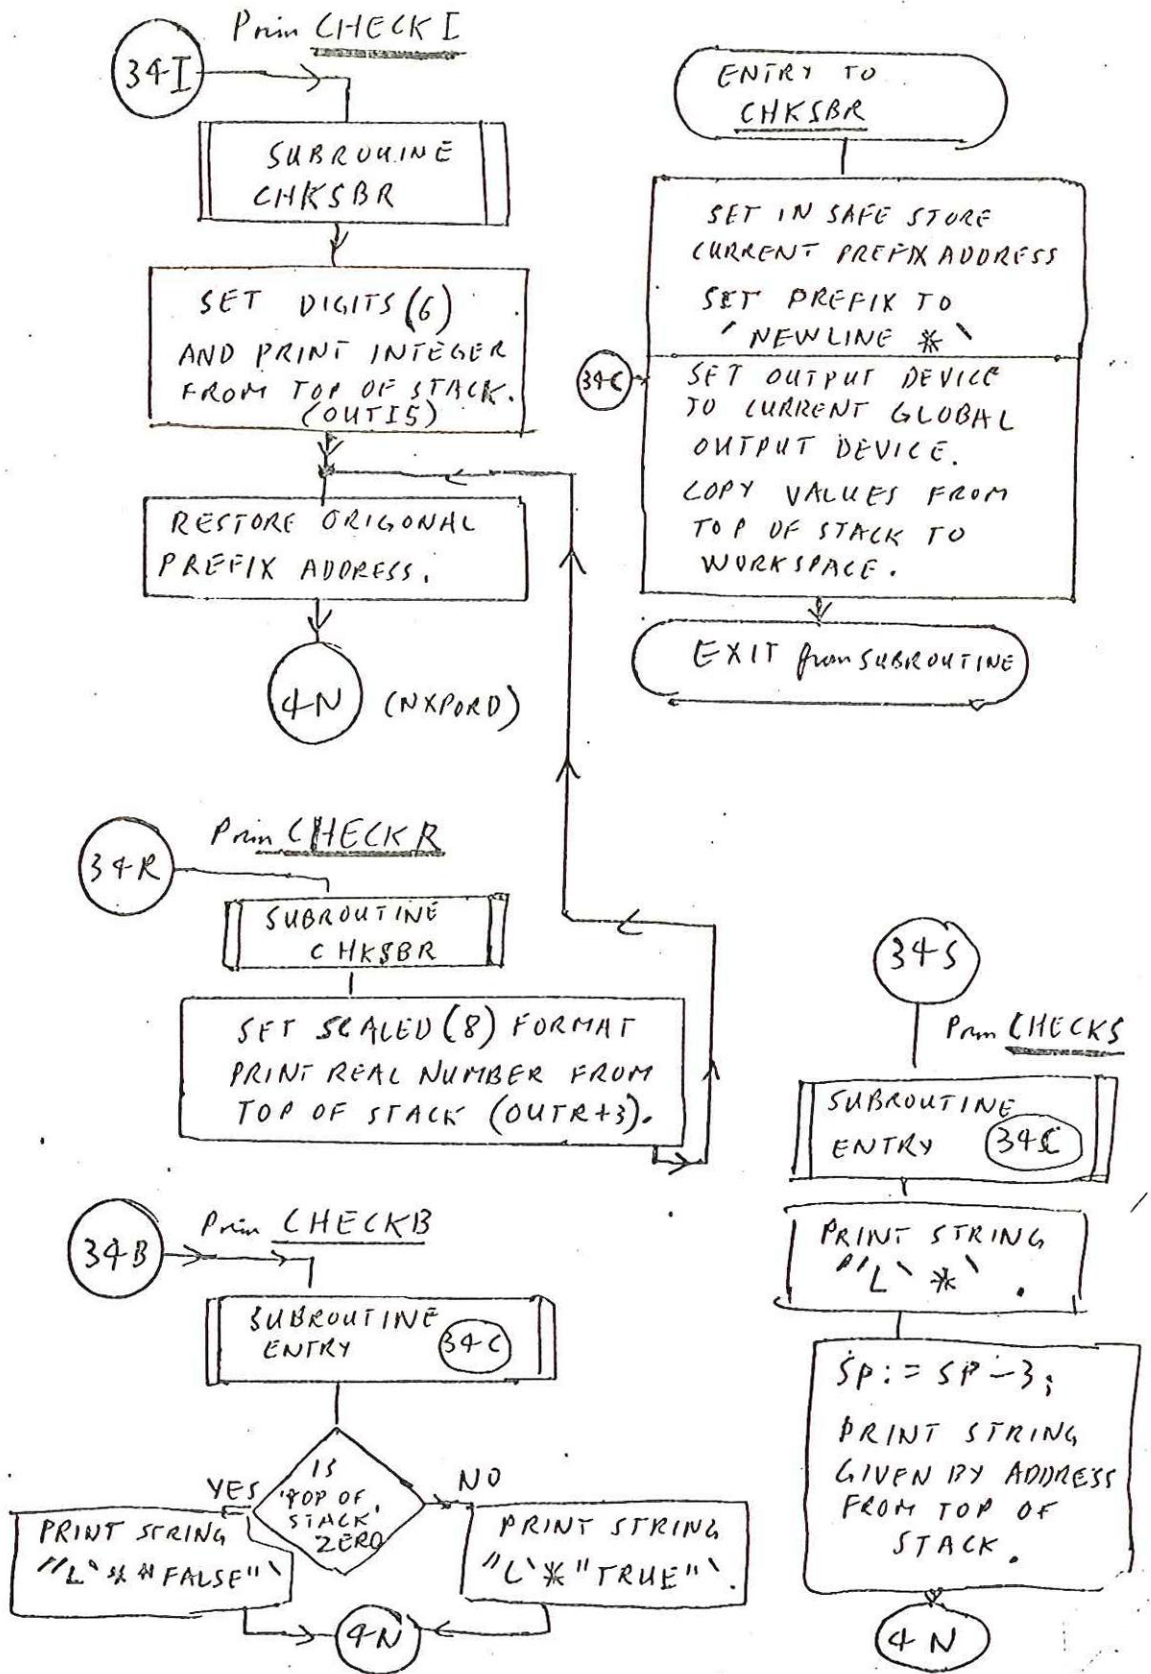 Prim CHECK I
34I
SUBROUINE
CHKSBR
SET DIGITS (6)
AND PRINT INTEGER
FROM TOP OF STACK.
(OUTI5)
RESTORE ORIGONAL
PREFIX ADDRESS.
4N (NXPORD)
ENTRY TO
CHKSBR
SET IN SAFE STORE
CURRENT PREFIX ADDRESS
SET PREFIX TO
'NEWLINE *`
34C
SET OUTPUT DEVICE
TO CURRENT GLOBAL
OUTPUT DEVICE.
COPY VALUES FROM
TOP OF STACK TO
WORKSPACE.
EXIT from SUBROUTINE
Prim CHECK R
34R
SUBROUTINE
CHKSBR
SET SCALED (8) FORMAT
PRINT REAL NUMBER FROM
TOP OF STACK (OUTR+3).
34S
Prim CHECKS
SUBROUTINE
ENTRY 34C
PRINT STRING
"L` *` .
SP := SP-3;
PRINT STRING
GIVEN BY ADDRESS
FROM TOP OF
STACK.
4N
Prim CHECKB
34B
SUBROUTINE
ENTRY 34C
IS
'TOP OF
STACK'
ZERO
YES
NO
PRINT STRING
"L`*"FALSE"`
PRINT STRING
"L`*"TRUE"`.
4N